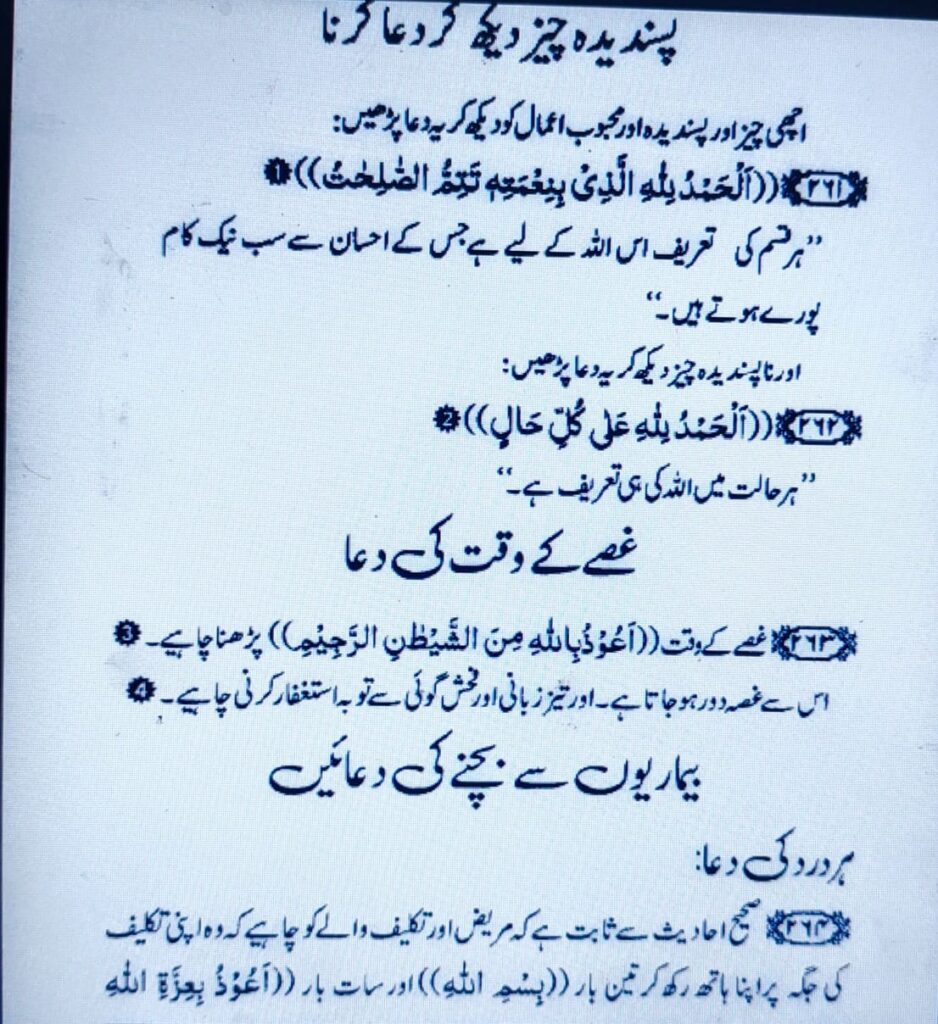 پسندیدہ چیز دیکھ کر دعا کرنا
اچھی چیز اور پسندیدہ اور محبوب اعمال کو دیکھ کر یہ دعا پڑھیں:
﴿۲۶۱﴾ ((اَلْحَمْدُ لِلّٰهِ الَّذِیْ بِنِعْمَتِهٖ تَتِمُّ الصّٰلِحٰتُ)) 1
’’ہر قسم کی تعریف اس اللہ کے لیے ہے جس کے احسان سے سب نیک کام
پورے ہوتے ہیں۔‘‘
اور ناپسندیدہ چیز دیکھ کر یہ دعا پڑھیں:
﴿۲۶۲﴾ ((اَلْحَمْدُ لِلّٰهِ عَلٰی كُلِّ حَالٍ)) 2
’’ہر حالت میں اللہ کی ہی تعریف ہے۔‘‘
غصے کے وقت کی دعا
﴿۲۶۳﴾ غصے کے وقت ((اَعُوْذُ بِاللّٰهِ مِنَ الشَّیْطٰنِ الرَّجِیْمِ)) پڑھنا چاہیے۔ 3
اس سے غصہ دور ہو جاتا ہے۔ اور تیز زبانی اور فحش گوئی سے توبہ استغفار کرنی چاہیے۔ 4
بیماریوں سے بچنے کی دعائیں
ہر درد کی دعا:
﴿۲۶۴﴾ صحیح احادیث سے ثابت ہے کہ مریض اور تکلیف والے کو چاہیے کہ وہ اپنی تکلیف
کی جگہ پر اپنا ہاتھ رکھ کر تین بار ((بِسْمِ اللّٰهِ)) اور سات بار ((اَعُوْذُ بِعِزَّةِ اللّٰهِ